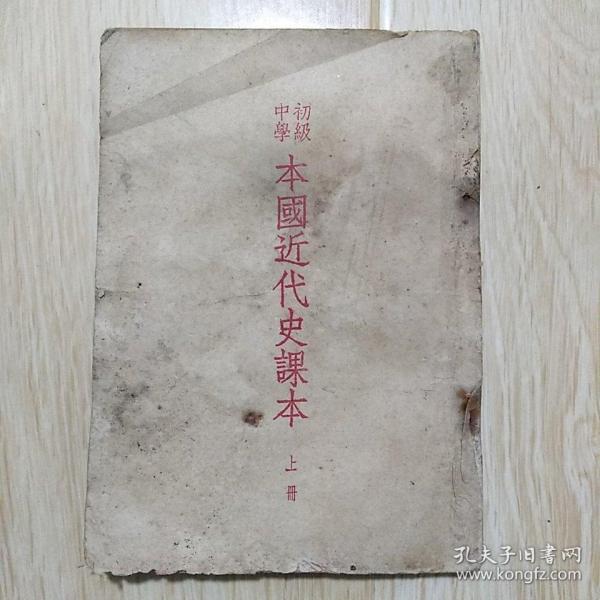 初級
中學
本國近代史課本
上冊
孔夫子旧書网
www.kongfz.com